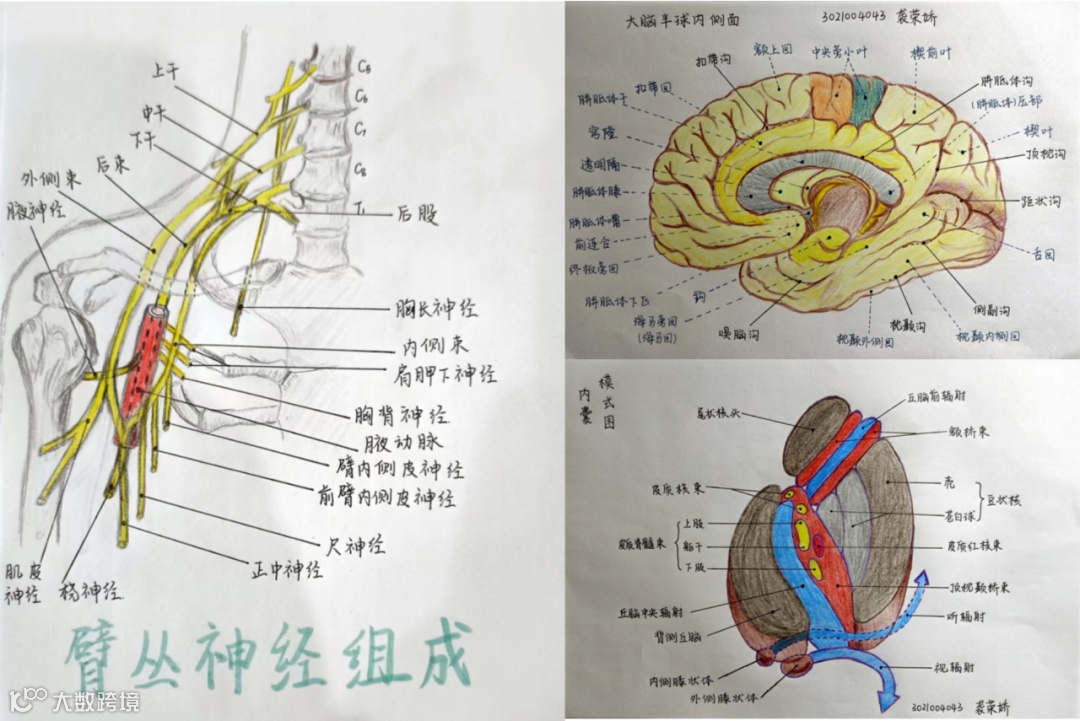 上干
中干
下干
外侧束
后束
腋神经
C₅
C₆
C₇
C₈
T₁
后股
胸长神经
内侧束
肩胛下神经
胸背神经
腋动脉
臂内侧皮神经
前臂内侧皮神经
尺神经
正中神经
肌皮
神经
桡神经
臂丛神经组成
大数跨境
大脑半球内侧面
3021004043 裘荣娇
扣带沟
额上回
中央旁小叶
楔前叶
扣带回
胼胝体干
穹隆
透明隔
胼胝体膝
胼胝体嘴
前连合
终板旁回
胼胝体下区
钩
海马旁回
(海马回)
嗅脑沟
胼胝体沟
(胼胝体)压部
楔叶
顶枕沟
距状沟
舌回
侧副沟
枕颞沟
枕颞内侧回
枕颞外侧回
内囊
模式图
尾状核头
丘脑前辐射
额桥束
皮质核束
壳
苍白球
豆状核
皮质脊髓束
上肢
躯干
下肢
皮质红核束
丘脑中央辐射
顶枕颞桥束
背侧丘脑
听辐射
内侧膝状体
外侧膝状体
视辐射
3021004043 裘荣娇